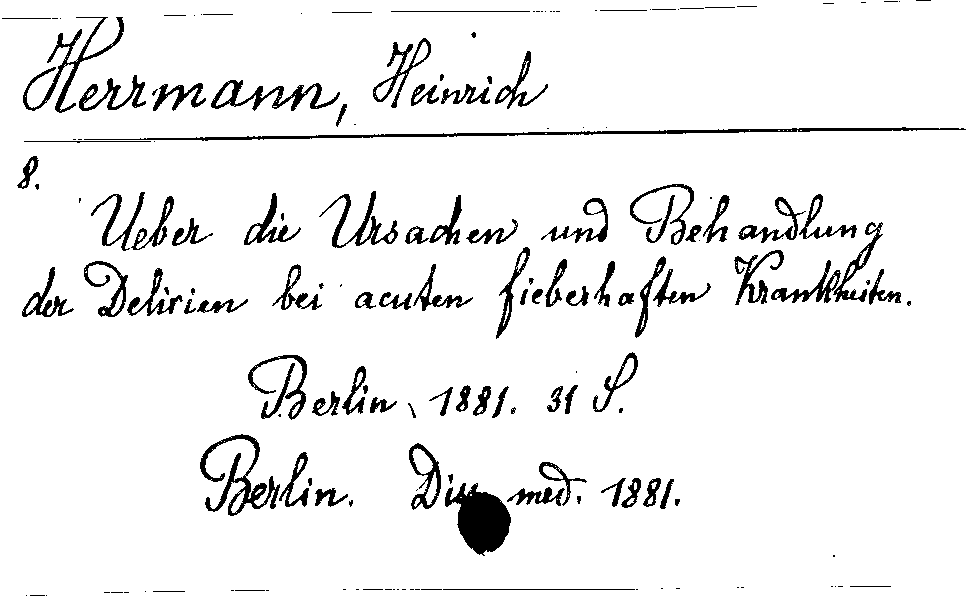 Herrmann, Heinrich
8.
Ueber die Ursachen und Behandlung
der Delirien bei acuten fieberhaften Krankheiten.
Berlin, 1881. 31 S.
Berlin. Diss. med. 1881.